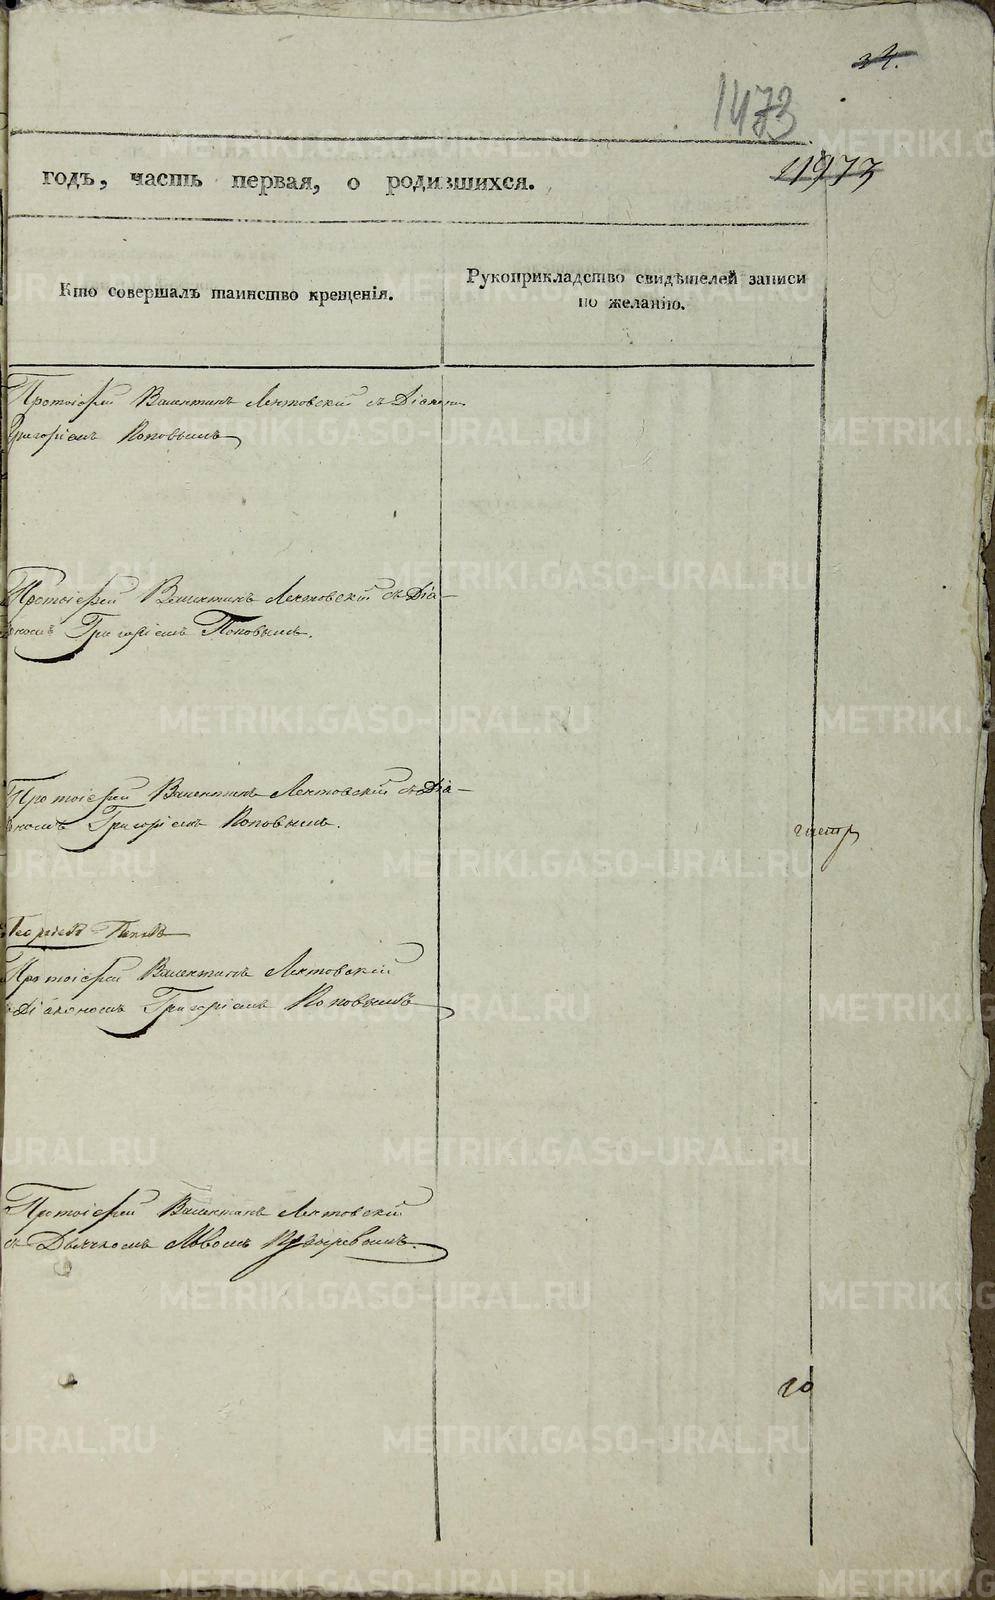 34.
1473
11973
годъ, часть первая, о родившихся.
Кто совершалъ таинство крещенія.
Рукоприкладство свидѣтелей записи
по желанію.
Протоіерей Валентинъ Лентовскій съ Діакон
Григоріемъ Поповымъ
Протоіерей Валентинъ Лентовскій съ Діа-
кономъ Григоріемъ Поповымъ.
Протоіерей Валентинъ Лентовскій съ Діа-
кономъ Григоріемъ Поповымъ.
Протоіерей Валентинъ Лентовскій
съ Діакономъ Григоріемъ Поповымъ
Протоіерей Валентинъ Лентовскій
съ Дьячкомъ Львомъ
METRIKI.GASO-URAL.RU